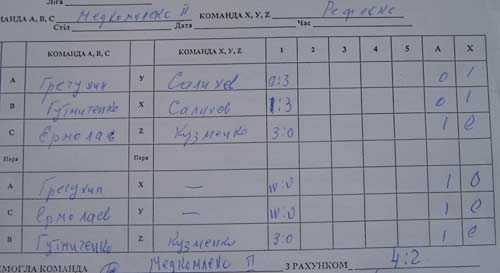 Ліга
КОМАНДА A, B, C Медкомплекс П КОМАНДА X, У, Z Рефлекс
Стіл Дата Час
КОМАНДА A, B, C КОМАНДА X, У, Z 1 2 3 4 5 A X
A Грегухин У Салихов 0:3 0 1
B Гутниченко X Салихов 1:3 0 1
C Ермолаев Z Кузменко 3:0 1 0
Пара Пара
A Грегухин X — w:0 1 0
C Ермолаев У — w:0 1 0
B Гутниченко Z Кузменко 3:0 1 0
ЕМОГЛА КОМАНДА Медкомлекс П З РАХУНКОМ 4:2